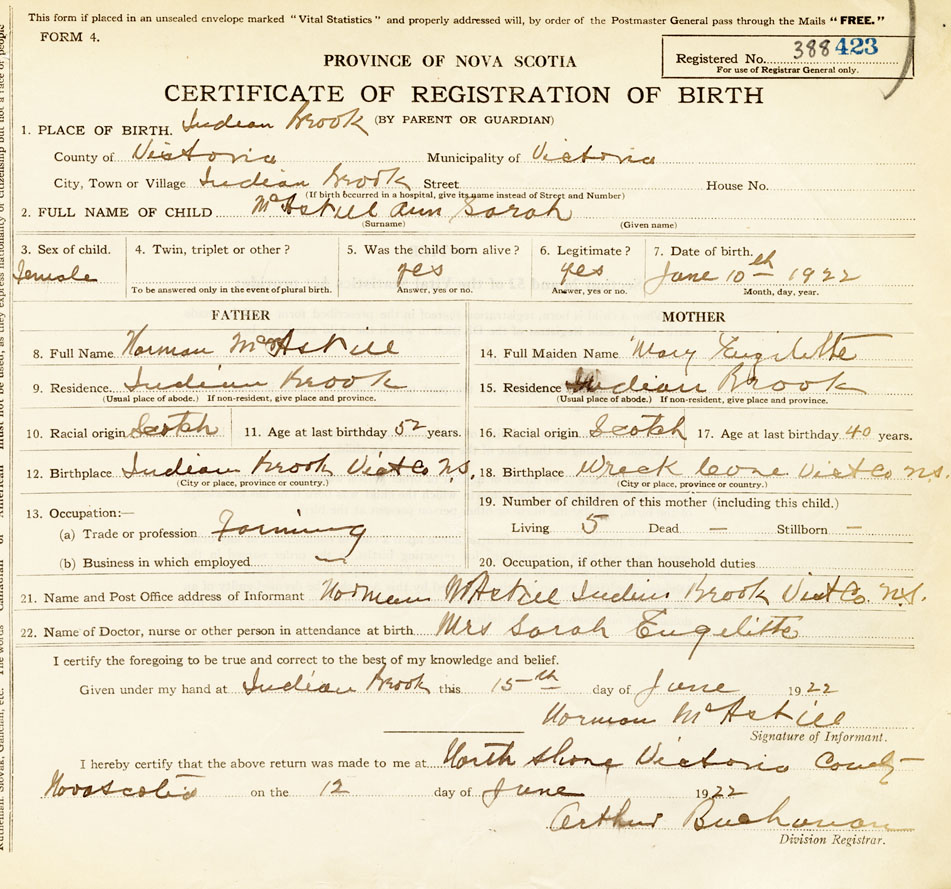 This form if placed in an unsealed envelope marked "Vital Statistics" and properly addressed will, by order of the Postmaster General pass through the Mails "FREE."
FORM 4.
Registered No. 388423
For use of Registrar General only.
PROVINCE OF NOVA SCOTIA
CERTIFICATE OF REGISTRATION OF BIRTH
(BY PARENT OR GUARDIAN)
1. PLACE OF BIRTH. Indian Brook
County of Victoria Municipality of Victoria
City, Town or Village Indian Brook Street House No.
(If birth occurred in a hospital, give its name instead of Street and Number)
2. FULL NAME OF CHILD McAskill Ann Sarah
(Surname) (Given name)
3. Sex of child. 4. Twin, triplet or other? 5. Was the child born alive? 6. Legitimate? 7. Date of birth.
female yes yes June 10th 1922
To be answered only in the event of plural birth. Answer, yes or no. Answer, yes or no. Month, day, year.
FATHER MOTHER
8. Full Name Norman McAskill 14. Full Maiden Name Mary
9. Residence Indian Brook 15. Residence Indian Brook
(Usual place of abode.) If non-resident, give place and province. (Usual place of abode.) If non-resident, give place and province.
10. Racial origin Scotch 11. Age at last birthday 52 years. 16. Racial origin Scotch 17. Age at last birthday 40 years.
12. Birthplace Indian Brook Vict Co N.S. 18. Birthplace Wreck Cove Vict Co N.S.
(City or place, province or country.) (City or place, province or country.)
13. Occupation:— 19. Number of children of this mother (including this child.)
(a) Trade or profession Farming Living 5 Dead — Stillborn —
(b) Business in which employed — 20. Occupation, if other than household duties
21. Name and Post Office address of Informant Norman McAskill Indian Brook Vict Co. N.S.
22. Name of Doctor, nurse or other person in attendance at birth Mrs Sarah
I certify the foregoing to be true and correct to the best of my knowledge and belief.
Given under my hand at Indian Brook this 15th day of June 1922
Norman McAskill
Signature of Informant.
I hereby certify that the above return was made to me at North Shore Victoria County
Nova Scotia on the 12 day of June 1922
Arthur Buchanan
Division Registrar.